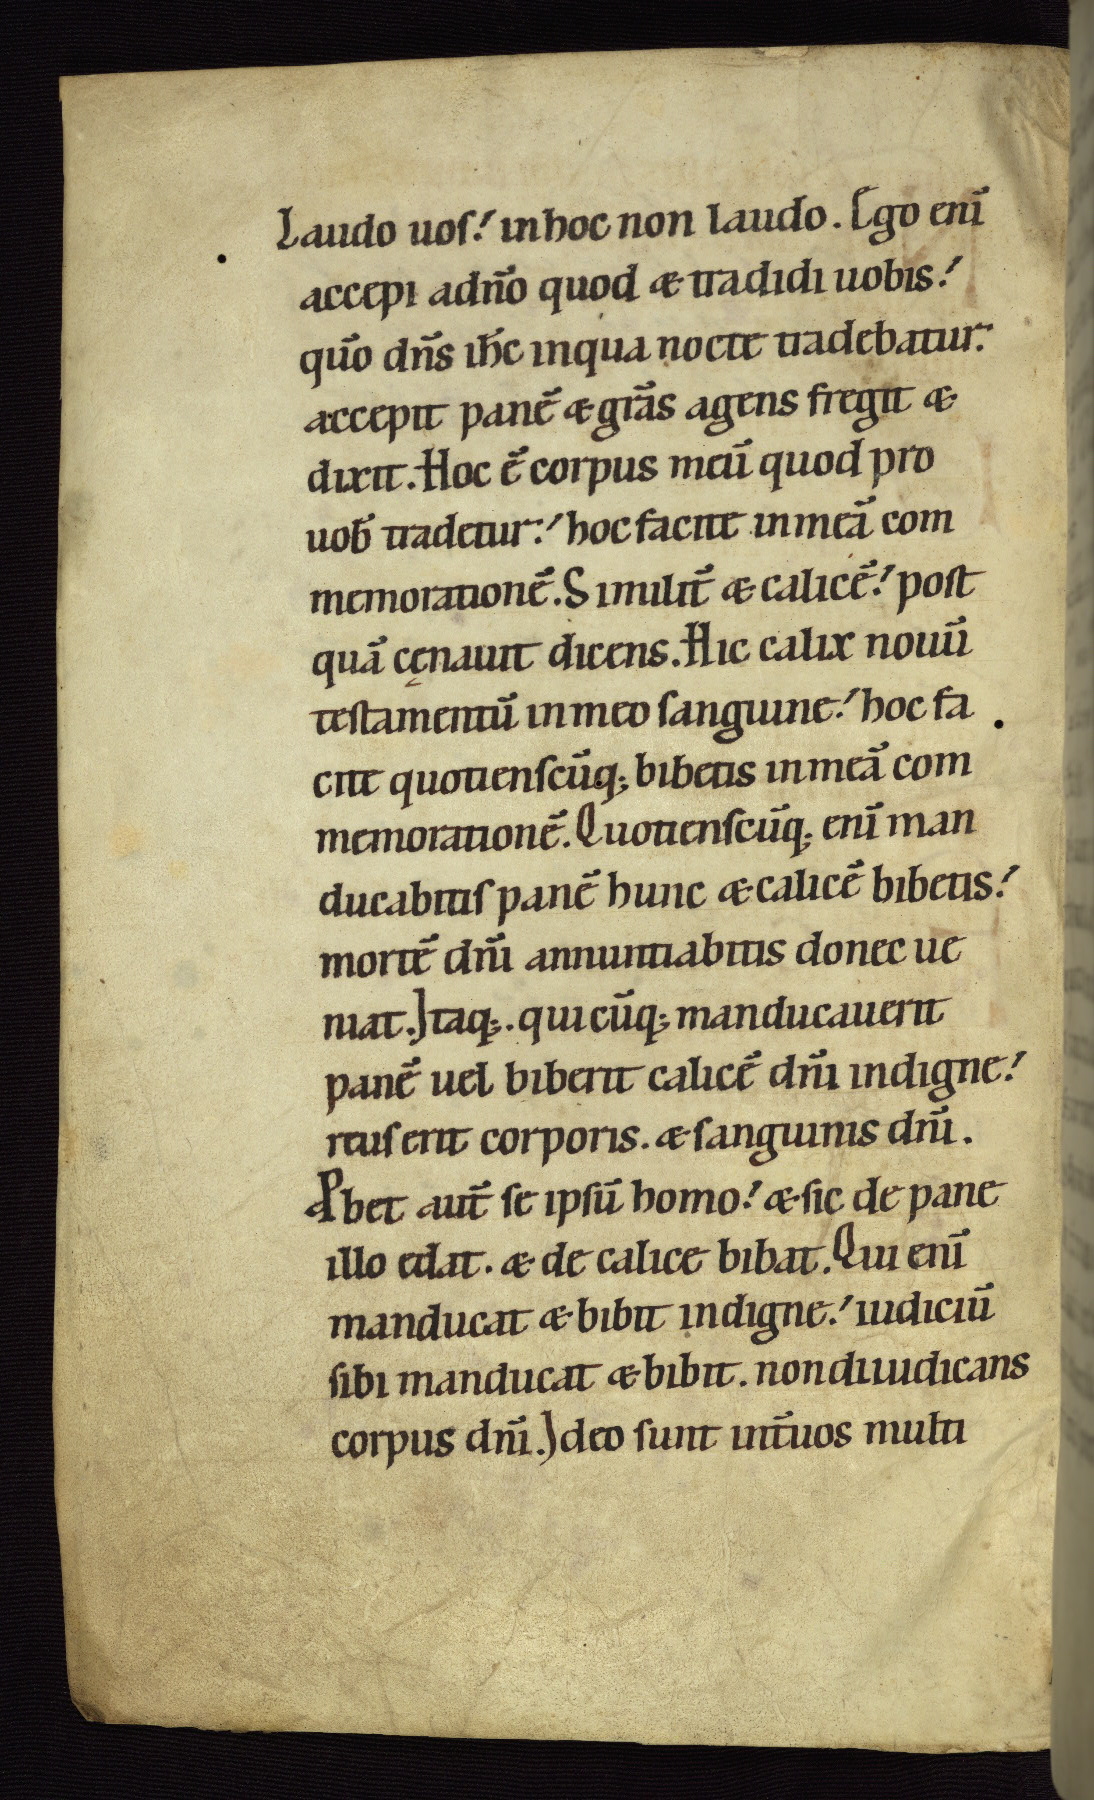 Laudo uoſ! inhoc non laudo. Ego eni̅
accepi adn̅o quod & tradidi uobis!
quo̅ dn̅s ih̅c inqua nocte tradebatur.
accepit pane̅ & gra̅s agens fregit &
dixit. Hoc e̅ corpus meu̅ quod pro
uob̅ tradetur! hoc facite in mea̅ com
memoratione̅. Similit̅ & calice̅! poſt
qua̅ cęnauit dicens. Hic calix nouu̅
teſtamentu̅ in meo ſanguine! hoc fa
cite quotienſcu̅q; bibetis in mea̅ com
memoratione̅. Quotienſcu̅q; eni̅ man
ducabitiſ pane̅ hunc & calice̅ bibetis!
morte̅ dn̅i annuntiabitis donec ue
niat. Itaq;. quicu̅q; manducauerit
pane̅ uel biberit calice̅ dn̅i indigne!
reuſ erit corporis. & ſanguinis dn̅i.
Pbet aut̅ ſe ipſu̅ homo! & ſic de pane
illo edat. & de calice bibat. Qui eni̅
manducat & bibit indigne! iudiciu̅
ſibi manducat & bibit. non diiudicans
corpus dn̅i. Ideo ſunt int̅ uos multi